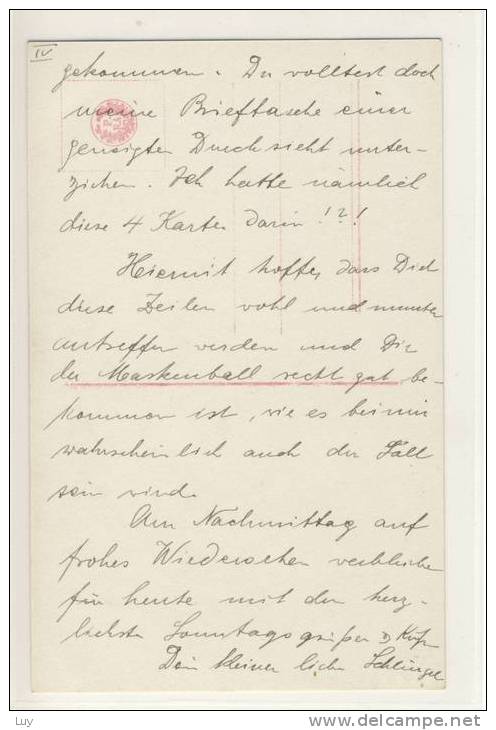 IV
gekommen. Du wolltest doch
meine Brieftasche einer
geneigten Durchsicht unter-
ziehen. Ich hatte nämlich
diese 4 Karten darin!?!
Hiermit hoffe, dass Dich
diese Zeilen wohl und munter
antreffen werden und Dir
der Maskenball recht gut be-
kommen ist, wie es bei mir
wahrscheinlich auch der Fall
sein wird.
Am Nachmittag auf
frohes Wiedersehen verbleibe
für heute mit den herz-
lichsten Sonntagsgrüßen
Dein kleiner lieber Schlingel
Luy
www.delcampe.net